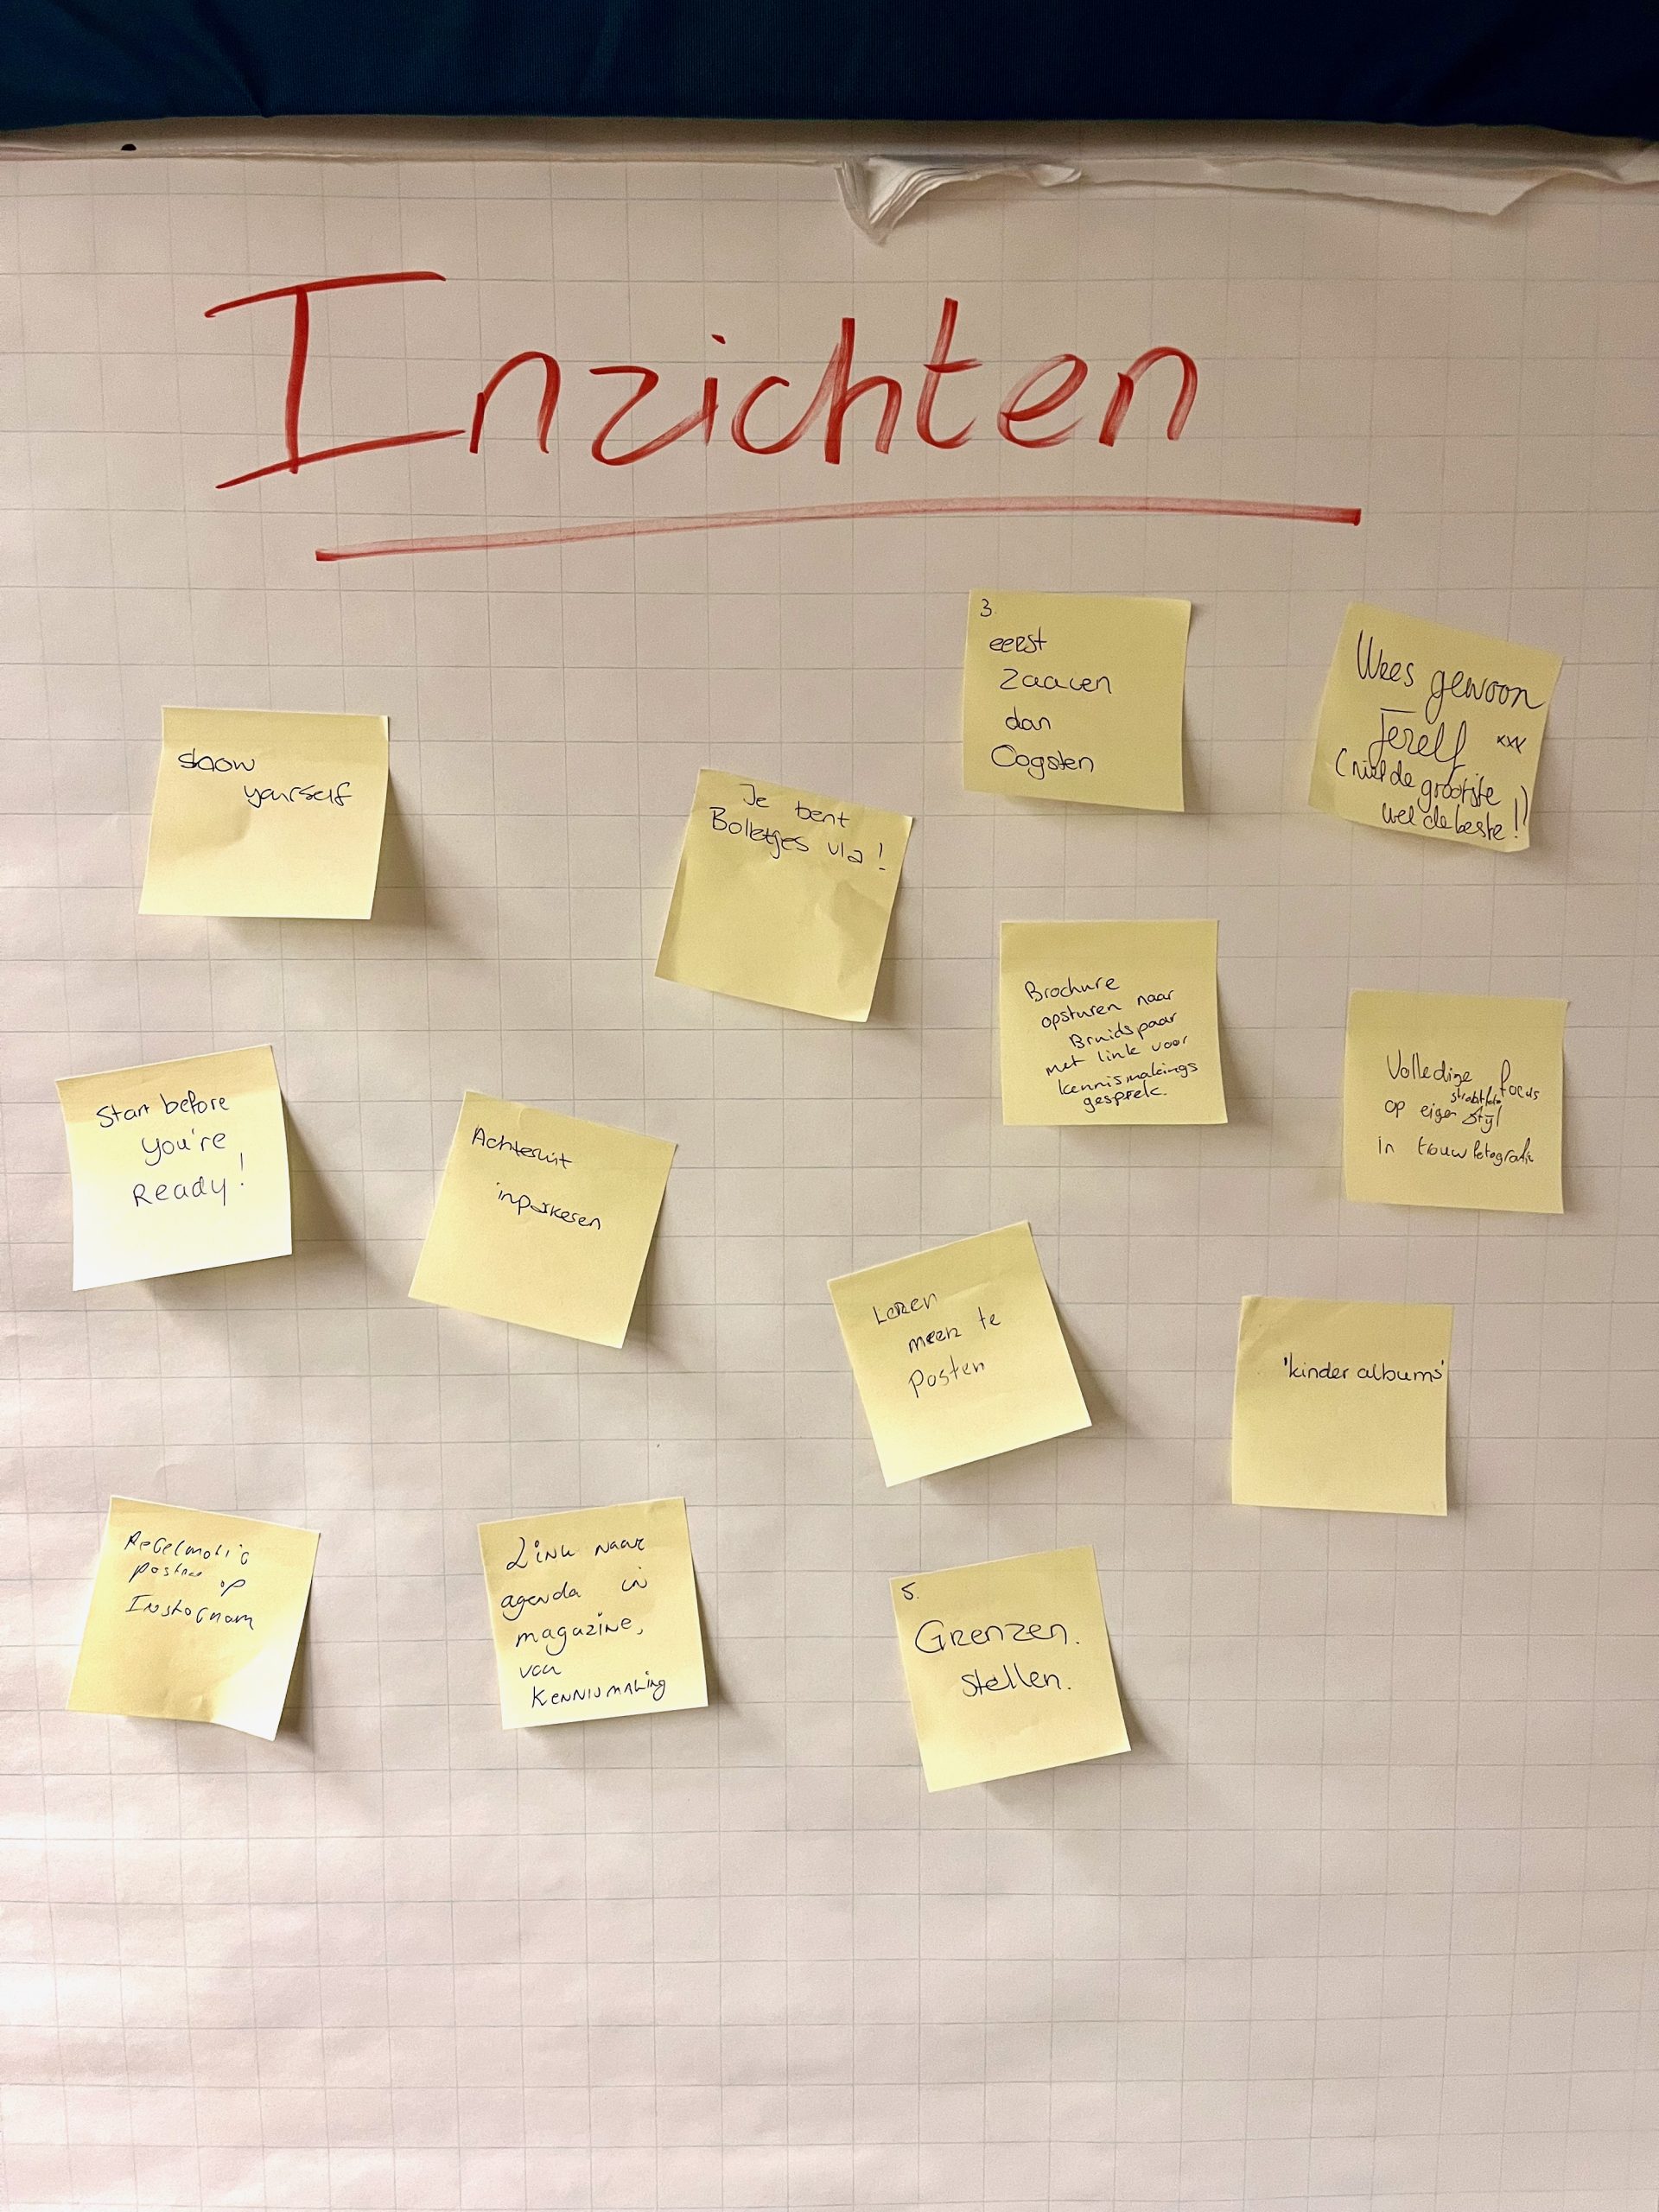 Inzichten
3.
eerst
Zaaien
dan
Oogsten
Wees gewoon
Jezelf xxx
(niet de grootste
wel de beste!!)
Show
yourself
Je bent
Bolletjes vla!
Brochure
opsturen naar
Bruidspaar
met link voor
kennismakings
gesprek.
Volledige focus
op eigen stijl
in trouwfotografie
Start before
you're
Ready!
Achteruit
inparkeren
Leren
meer te
Posten
'kinder albums'
Regelmatig
posten op
Instagram
Link naar
agenda in
magazine,
voor
Kennismaking
5.
Grenzen.
stellen.